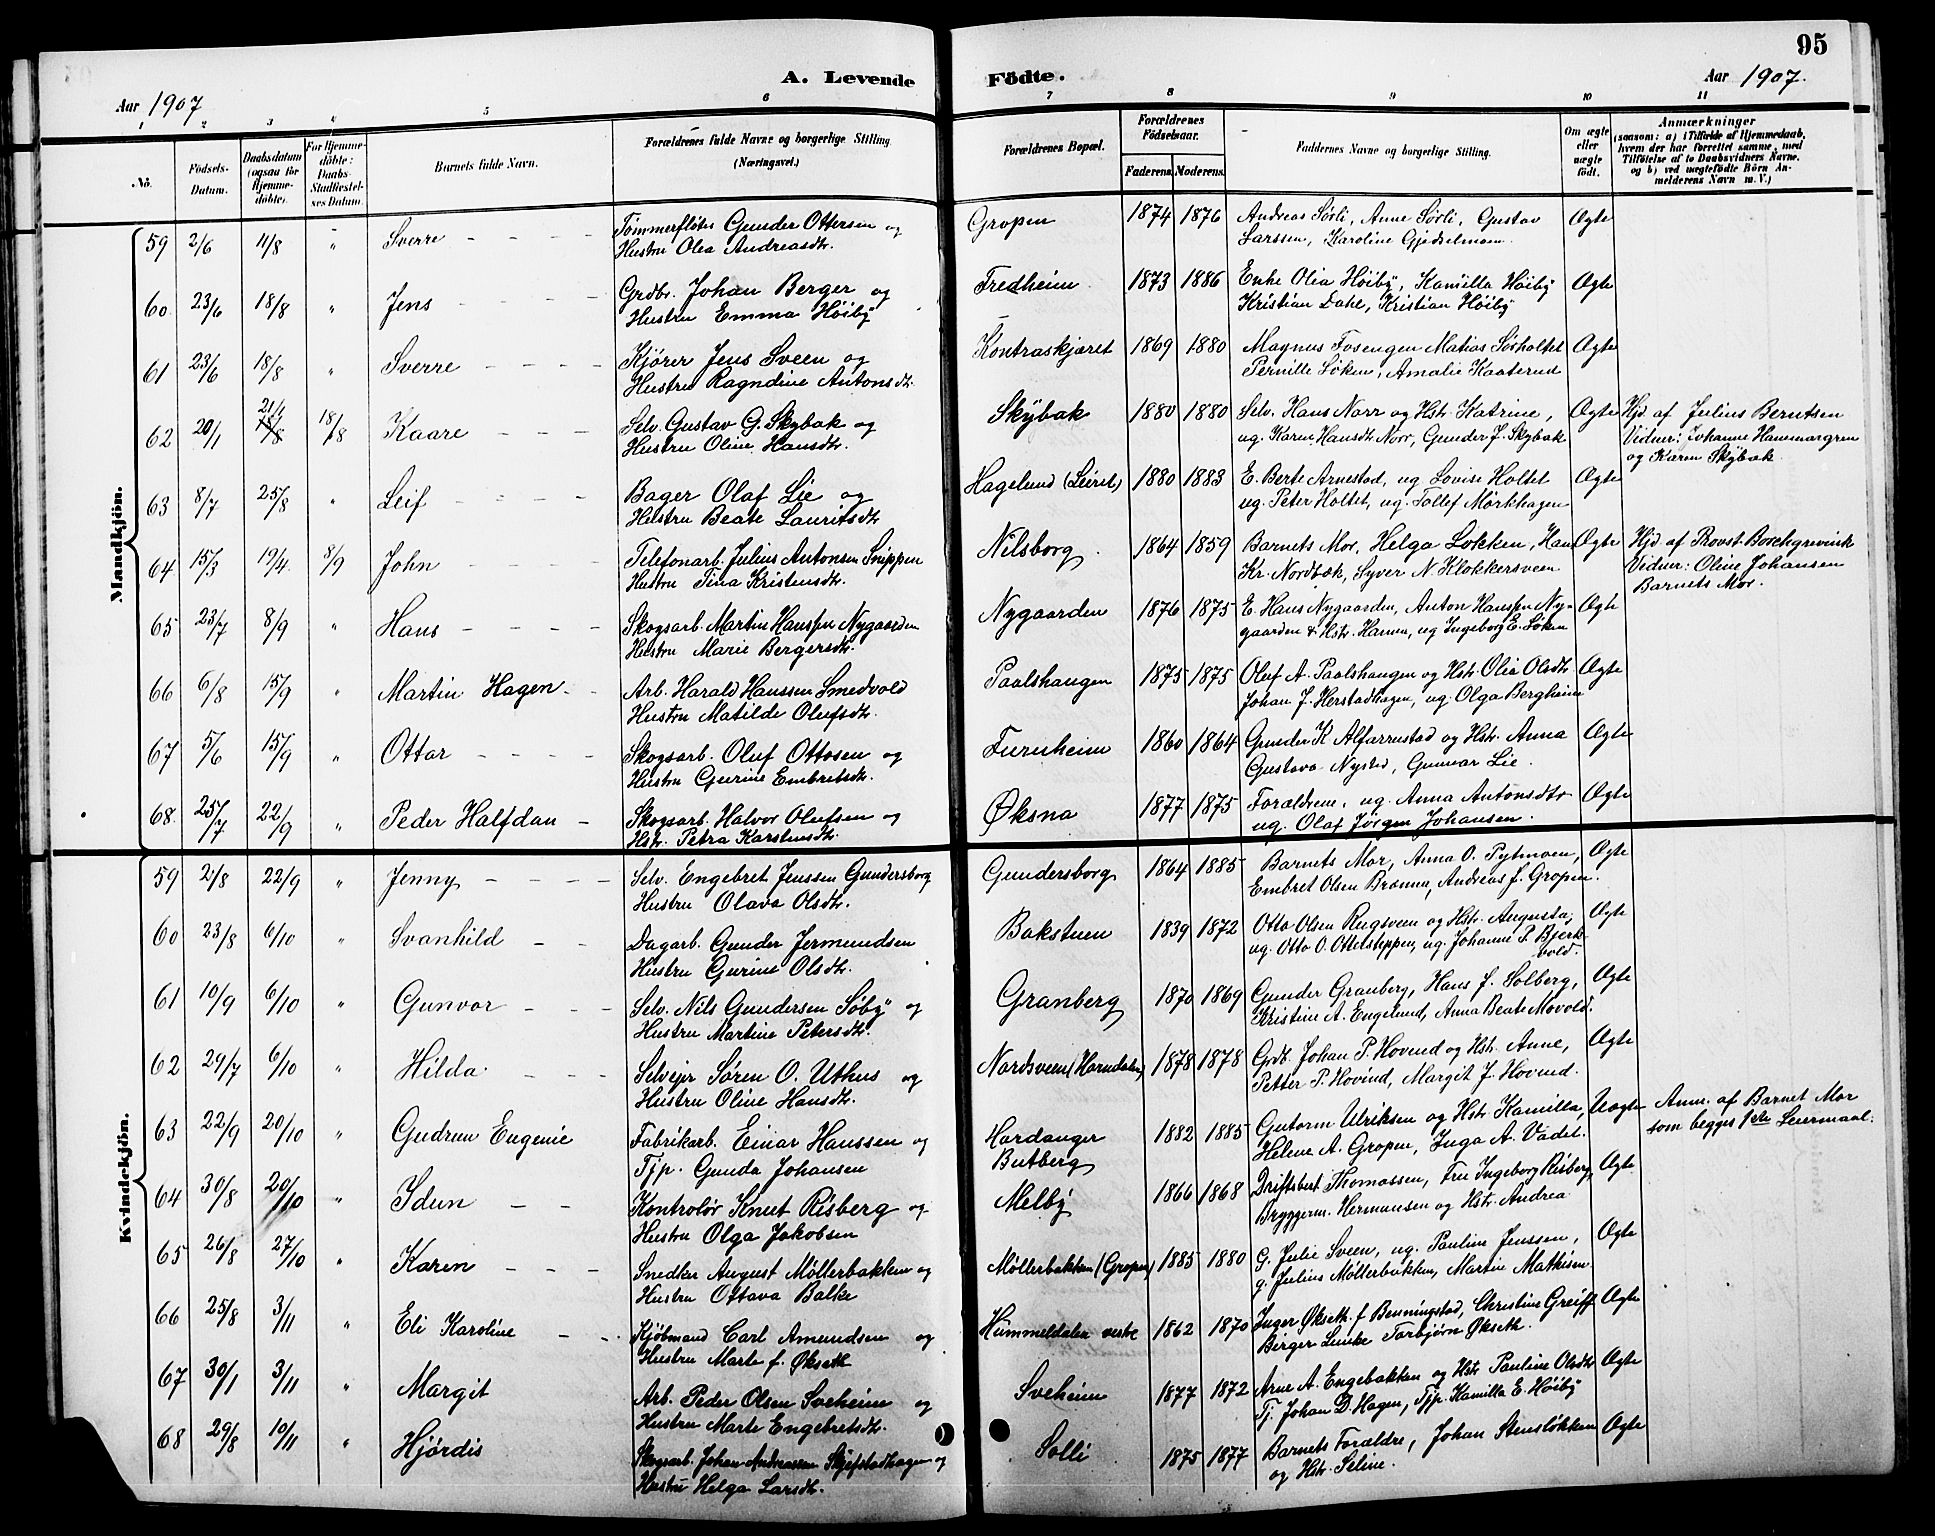 95
A. Levende Födte.
Aar 1907
Aar 1907.
1 2 3 4 5 6 7 8 9 10 11
No.
Födsels-Datum.
Daabsdatum (ogsaa for Hjemme-döbte).
For Hjemme-döbte: Daabs-Stadfæstel-ses Datum.
Barnets fulde Navn.
Forældrenes fulde Navne og borgerlige Stilling. (Næringsvei.)
Forældrenes Bopæl.
Forældrenes Födselsaar.
Faderens. Moderens.
Faddernes Navne og borgerlige Stilling.
Om ægte eller uægte födt.
Anmærkninger
(saasom: a) i Tilfælde af Hjemmedaab, hvem der har forrettet samme, med Tilföielse af to Daabsvidners Navne. og b) ved uægtefödte Börn An-melderens Navn m. V.)
Mandkjön.
59 2/6 11/8 " Sverre Tømmerfløter Gunder Ottersen og Gropen 1874 1876 Andreas Sørli, Anne Sørli, Gustav Ægte
Hustru Olea Andreasdtr. Larssen, Karoline Gjedselmoen.
60 23/6 18/8 " Jens Grdbr. Johan Berger og Fredheim 1873 1886 Enke Olia Høiby, Kamilla Høiby Ægte
Hustru Emma Høiby Kristian Dahl, Kristian Høiby
61 23/6 18/8 " Sverre Kjörer Jens Sveen og Kontraskjæret 1869 1880 Magnus Fosengen Matias Sørholtet Ægte
Hustru Ragndine Antonsdtr. Pernille Løken, Amalie Kaaterud
62 20/1 21/1 18/8 Kaare Selv. Gustav G. Skybak og Skybak 1880 1880 Selv. Hans Norr og Hstr. Katrine, Ægte Hjd af Julius Berntsen
Hustru Oline Hansdtr. ug. Karen Hansdtr Norr, Gunder J. Skybak Vidner: Johanne Hammargren
og Karen Skybak
63 8/7 25/8 " Leif Bager Olaf Lie og Hagelund (Leiret) 1880 1883 E. Berte Arnestad, ug Lovise Holtet Ægte
Hustru Beate Lauritsdtr ug. Peter Holtet, ug. Tollef Mörkhagen
64 15/3 19/4 8/9 John Telefonarb. Julius Antonsen Snippen Nilsborg 1864 1859 Barnets Mor, Helga Løkken, Hans Ægte Hjd af Provst Boschgrevink
Hustru Tina Kristensdtr. Kr. Nordbæk, Syver N. Klokkersveen Vidner: Oline Johansen
Barnets Mor.
65 23/7 8/9 " Hans Skogsarb. Martin Hanssen Nygaarden Nygaarden 1876 1875 E. Hans Nygaarden, Anton Hanssen Ny- Ægte
Hustru Marie Bergersdtr. gaarden & Hstr. Hanna, ug Ingeborg E. Løken
66 6/8 15/9 " Martin Hagen Arb. Harald Hanssen Smedvold Paalshaugen 1875 1875 Oluf A. Paalshaugen og Hstr. Olia Olsdtr. Ægte
Hustru Matilde Olufsdtr. Johan J. Herstadhagen, ug. Olga Bergheim
67 5/6 15/9 " Ottar Skogsarb. Oluf Ottosen og Furuheim 1860 1864 Gunder K Alfarrustad og Hstr. Anna Ægte
Hustru Gurine Embretsdtr. Gustava Nysted, Gunnar Lie.
68. 25/7 22/9 " Peder Halfdan Skogsarb. Halvor Olufsen og Øksna 1877 1875 Forældrene, ug. Anna Antonsdtr Ægte
Hstr. Petra Karstensdtr. ug. Olaf Jørgen Johansen.
Kvindekjön.
59 2/8 22/9 " Jenny Selv. Engebret Jenssen Gundersborg Gundersborg 1864 1885 Barnets Mor, Anna O. Pytmoen, Ægte
Hustru Olava Olsdtr. Embret Olsen Brænna, Andreas J. Gropen.
60 23/8 6/10 " Svanhild Dagarb. Gunder Jermundsen Bakstuen 1839 1872 Otto Olsen Rugsveen og Hstr. Augusta, Ægte
Hustru Gurine Olsdtr. ug. Otto O. Ottelsteppen, ug. Johanne P. Bjerk-
vold.
61 10/9 6/10 " Gunvor Selv. Nils Gundersen Søby og Granberg 1870 1869 Gunder Granberg, Hans J. Solberg, Ægte
Hustru Martine Petersdtr. Kristine A. Engelund, Anna Beate Movold.
62 29/7 6/10 " Hilda Selveier Søren O. Uthus og Nordsveen (Horndalen) 1878 1878 Grdb. Johan P. Hovind og Hstr. Anne, Ægte
Hustru Oline Hansdtr. Petter P. Hovind, Margit J. Hovind.
63 22/9 20/10 " Gudrun Eugenie Fabrikarb. Einar Hanssen og Hardanger 1882 1885 Gutorm Ulriksen og Hstr. Kamilla, Uægte Anm. af Barnet Mor
Tjp. Gunda Johansen Butberg Helene A. Gropen, Inga A. Vadet. som begges 1ste Leiermaal.
64 30/8 20/10 " Idun Kontrolør Knut Risberg og Melby 1866 1868 Driftsbest Thomassen, Fru Ingeborg Risberg, Ægte
Hustru Olga Jakobsen Bryggerm. Hermansen og Hstr. Andrea
65 26/8 27/10 " Karen Snedker August Møllerbakken og Møllerbakken (Gropen) 1885 1880 G. Julie Sveen, ug. Pauline Jenssen, Ægte
Hustru Ottava Balke g. Julius Møllerbakken, Martin Mathisen
66 25/8 3/11 " Eli Karoline Kjøbmand Carl Amundsen og Hummeldalen vestre 1862 1870 Inger Økseth f Benningstad, Christine Greiff Ægte
Hustru Marte f. Økseth Birger Linke Torbjørn Økseth.
67 30/1 3/11 " Margit Arb. Peder Olsen Sveheim og Sveheim 1877 1872 Arne A. Engebakken og Hstr Pauline Olsdtr Ægte
Hustru Marte Engebretsdtr. Tj. Johan D. Hagen, Tjp. Kamilla E. Høiby
68 29/8 10/11 " Hjördis Skogsarb. Johan Andreassen Skjefstadhagen og Solli 1875 1877 Barnets Forældre, Johan Stensløkken Ægte
Hustru Helga Larsdtr. og Hstr. Seline.